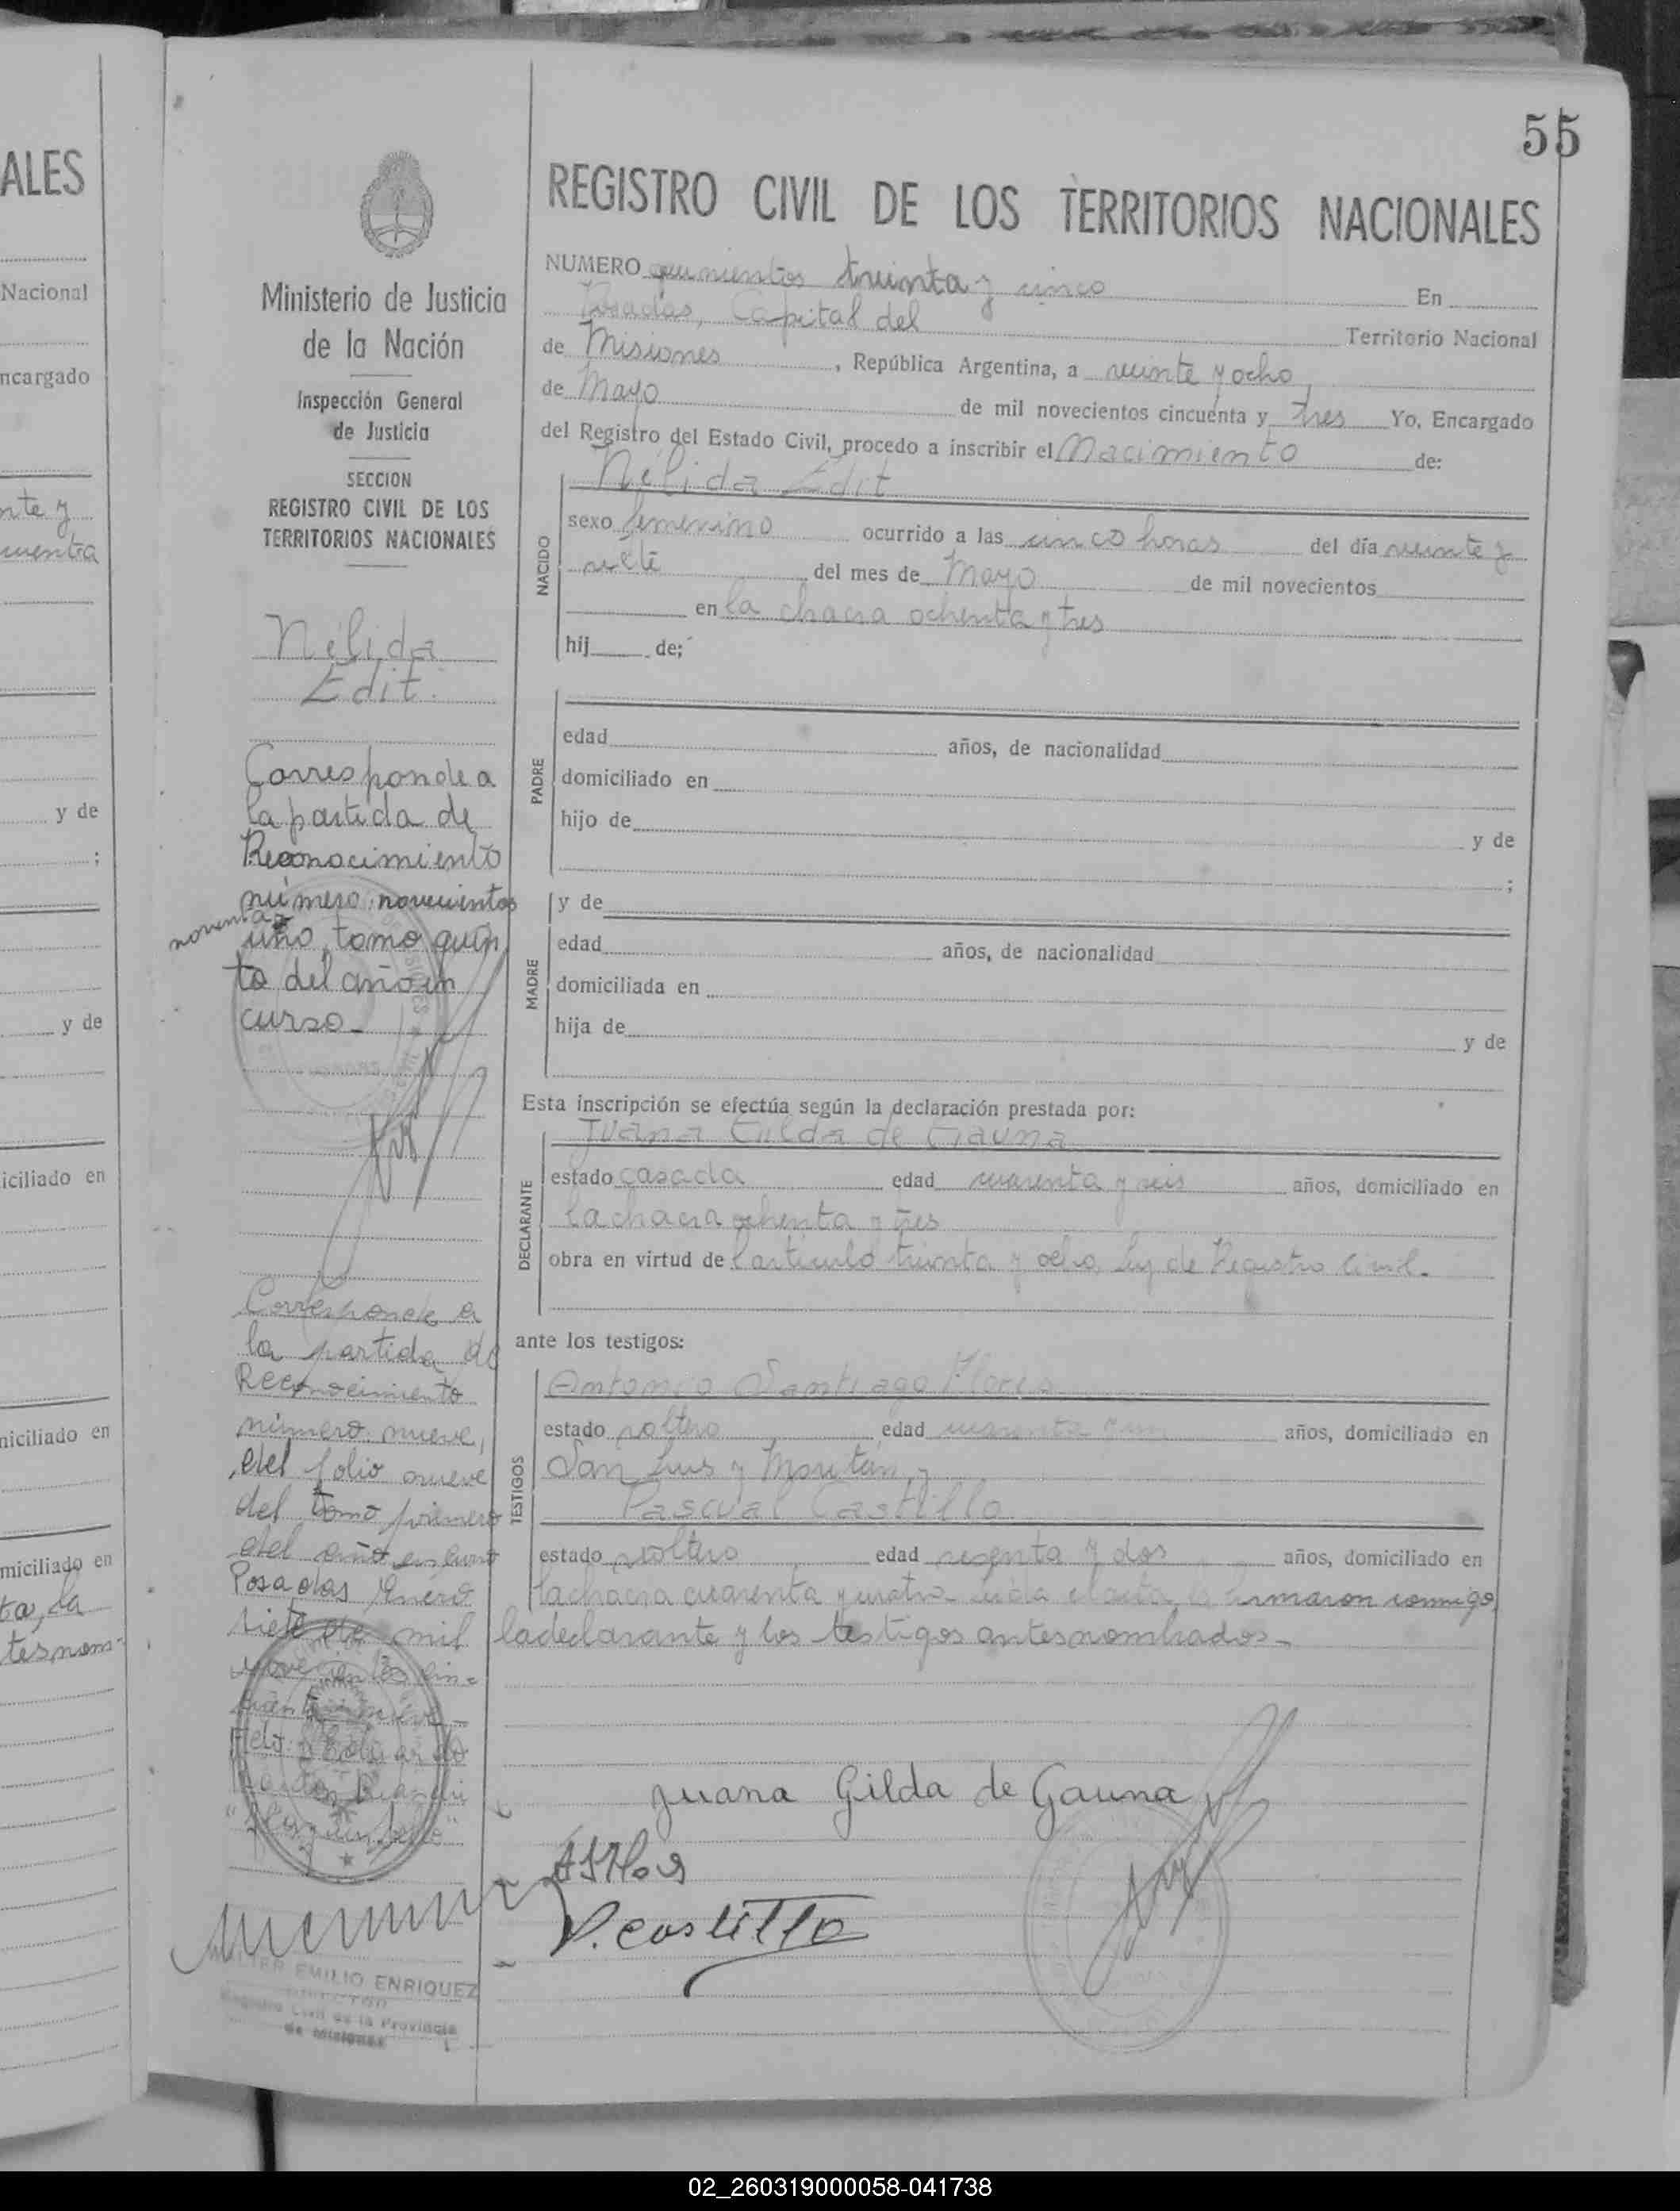 55
ALES
Nacional
ncargado
nte y
cuenta
y de
;
y de
iciliado en
niciliado en
miciliado en
ta, la
tesnom-
Ministerio de Justicia
de la Nación
Inspección General
de Justicia
SECCION
REGISTRO CIVIL DE LOS
TERRITORIOS NACIONALES
Nélida
Edit.
Corresponde a
la partida de
Reconocimiento
número novecientos
noventa y
uno, tomo quin
to del año en
curso_
Corresponde a
la partida de
Reconocimiento
número nueve,
del folio nueve
del tomo primero
del año en curso
Posadas Enero
siete de mil
novecientos cin-
cuenta
EMILIO ENRIQUEZ
Registro Civil de la Provincia
de Misiones
REGISTRO CIVIL DE LOS TERRITORIOS NACIONALES
NUMERO quinientos treinta y cinco En
Posadas, Capital del Territorio Nacional
de Misiones, República Argentina, a veinte y ocho,
de Mayo de mil novecientos cincuenta y tres Yo, Encargado
del Registro del Estado Civil, procedo a inscribir el Nacimiento de:
Nélida Edit
NACIDO
sexo femenino ocurrido a las cinco horas del día veinte y
siete del mes de Mayo de mil novecientos
en la chacra ochenta y tres
hij de;
PADRE
edad años, de nacionalidad
domiciliado en
hijo de y de
;
MADRE
y de
edad años, de nacionalidad
domiciliada en
hija de y de
Esta inscripción se efectúa según la declaración prestada por:
DECLARANTE
Juana Gilda de Gauna
estado casada edad cuarenta y seis años, domiciliado en
la chacra ochenta y tres
obra en virtud del artículo treinta y ocho Ley de Registro Civil.
ante los testigos:
TESTIGOS
Antonio Santiago Flores
estado soltero edad cuarenta y un años, domiciliado en
San Luis y
Pascual Castillo
estado soltero edad sesenta y dos años, domiciliado en
la chacra cuarenta y cuatro. Leída el acta, la firmaron conmigo,
la declarante y los testigos antes nombrados_
Juana Gilda de Gauna
P. Castillo
02_260319000058-041738